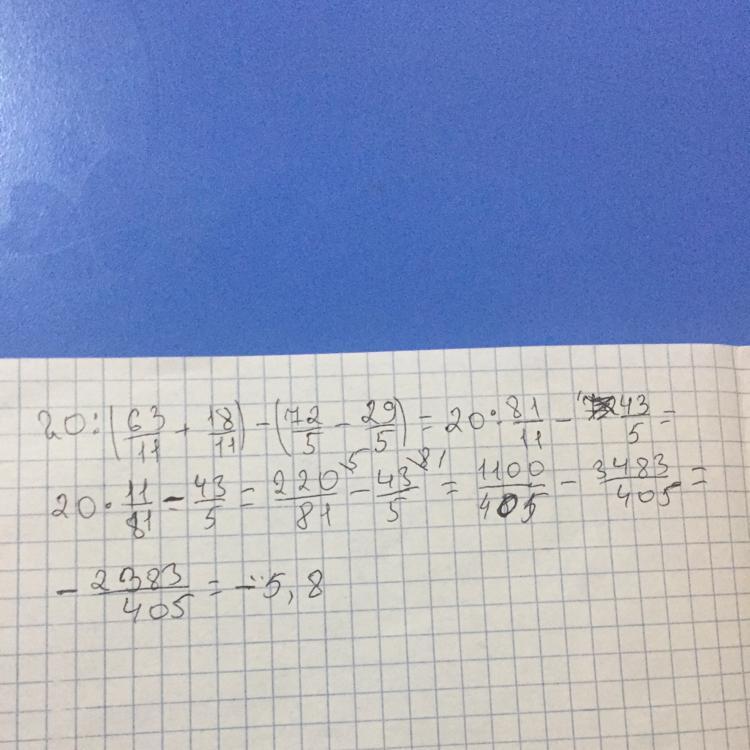 20:(63/11 + 18/11) - (72/5 - 29/5) = 20 : 81/11 - 43/5 =
20 · 11/81 - 43/5 = 220/81 \5 - 43/5 \81 = 1100/405 - 3483/405 =
- 2383/405 = -5,8